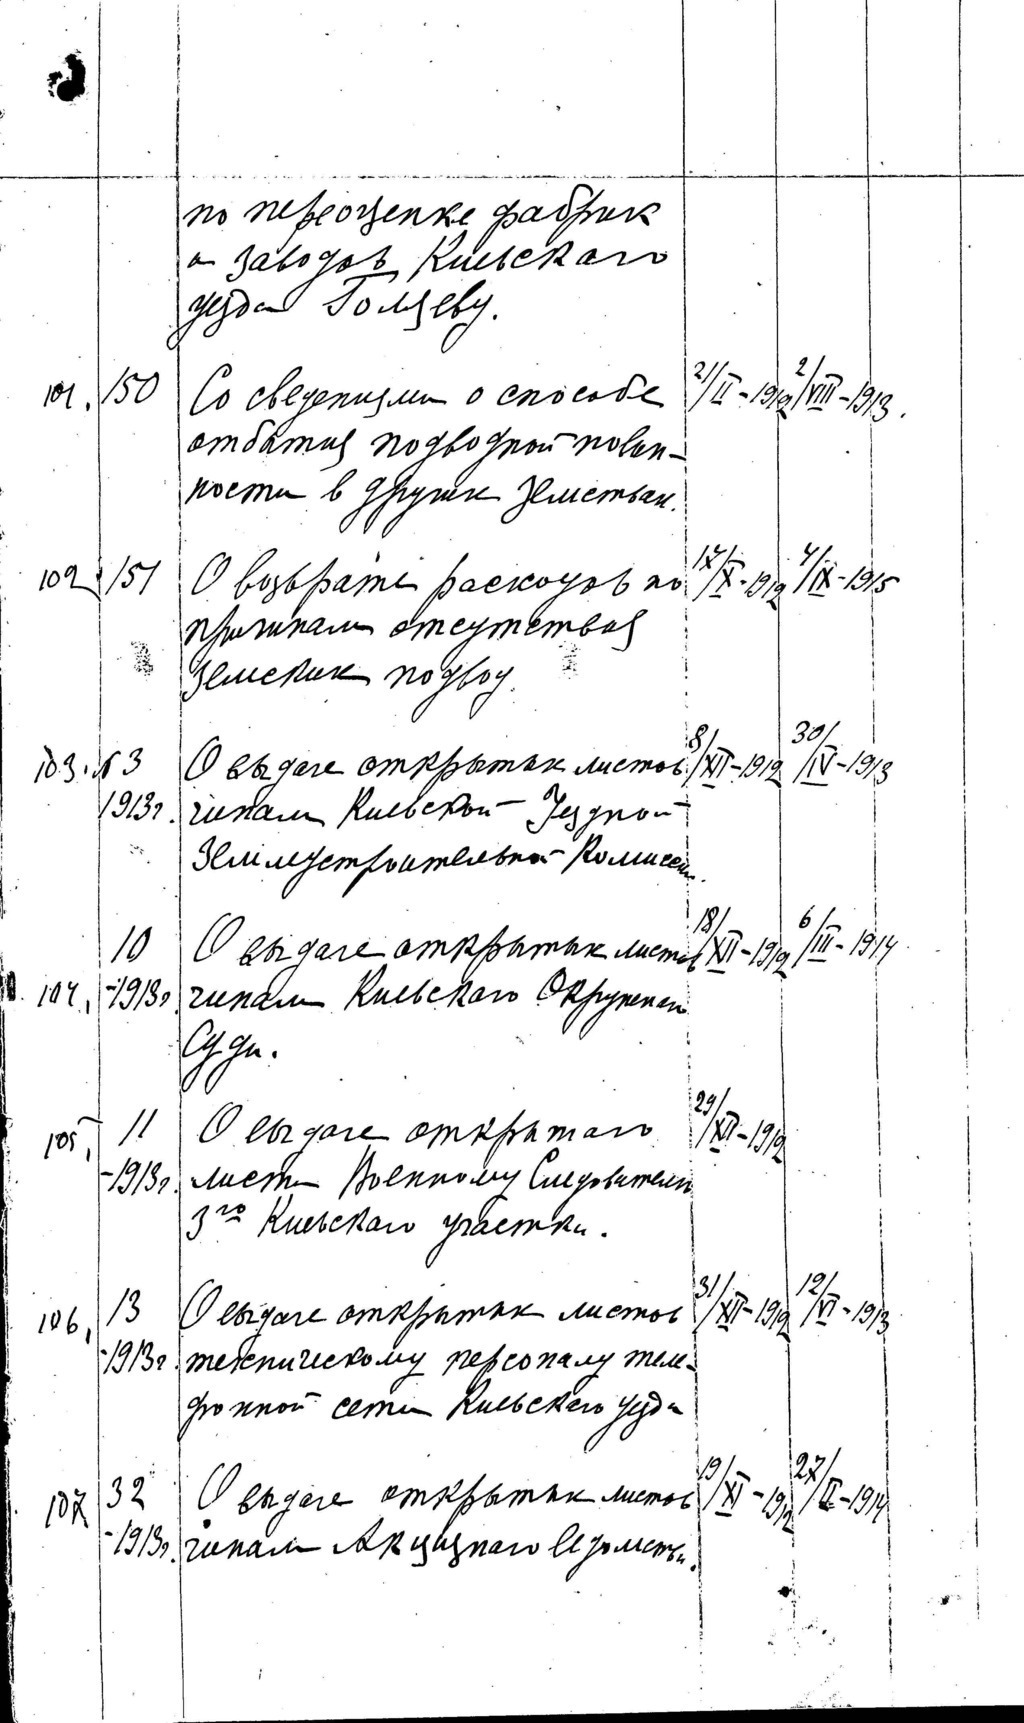 по переоценке фабрик
и заводов Киевского
уезда Голяеву.
101. 150 Со сведениями о способе 21/II-1912 2/VIII-1913.
отбытия подводной повин-
ности в других Земствах.
102 151 О возврате расходов по 17/X-1912 4/IX-1915
причинам отсутствия
Земских подвод.
103. 3 О выдаче открытых листов 8/XII-1912 30/IV-1913
1913г. чинам Киевской Уездной
Землеустроительной Комиссии.
10 О выдаче открытых листов 18/XII-1912 6/III-1914
104. -1913г чинам Киевского Окружного
Суда.
105. 11 О выдаче открытого 29/XII-1912
-1913г. листа Военному Следователю
3го Киевского участка.
106. 13 О выдаче открытых листов 31/XII-1912 12/VI-1913
-1913г. техническому персоналу теле-
фонной сети Киевского уезда
107 32 О выдаче открытых листов 19/XI-1912 27/II-1914
-1913г. чинам Акцизнаго Ведомства.